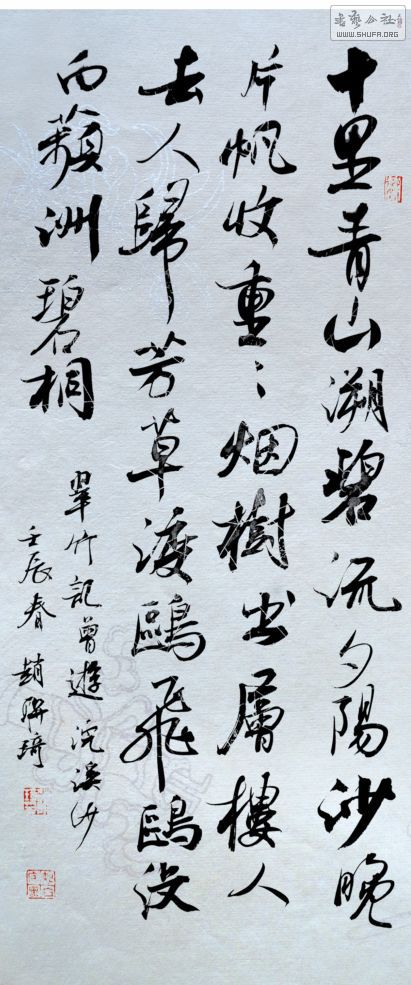 書藝公社
WWW.SHUFA.ORG
十里青山溯碧流夕陽沙晚
片帆收重〻烟樹出層樓人
去人歸芳草渡鷗飛鷗没
白蘋洲碧桐
翠竹記曾遊浣溪沙
壬辰春趙